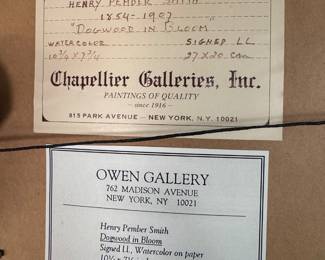 HENRY PEMBER SMITH
1854-1907
"DOGWOOD IN BLOOM"
WATERCOLOR SIGNED LL
10 3/4 x 7 3/4 27 x 20 cm
Chapellier Galleries, Inc.
PAINTINGS OF QUALITY
— since 1916 —
815 PARK AVENUE — NEW YORK, N.Y. 10021
OWEN GALLERY
762 MADISON AVENUE
NEW YORK, NY 10021
Henry Pember Smith
Dogwood in Bloom
Signed l.l., Watercolor on paper